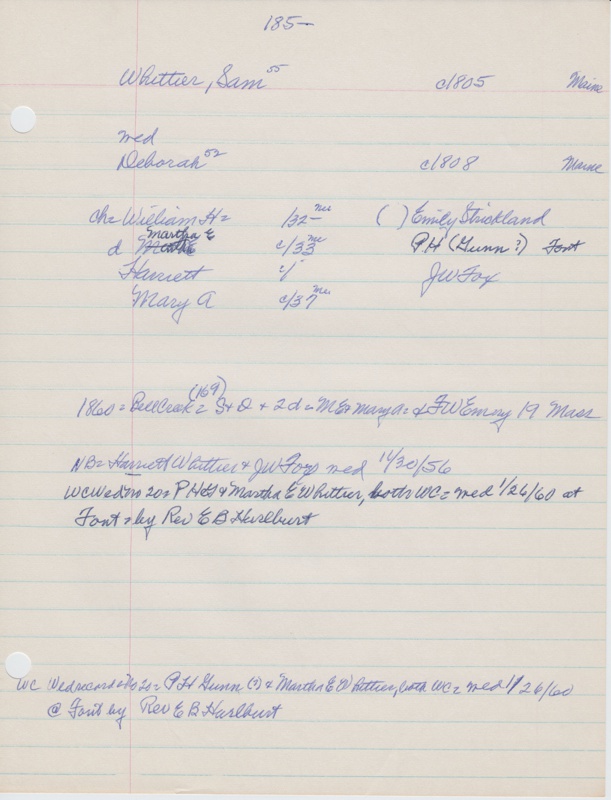 185-
Whittier, Sam 55 c/1805 Maine
med
Deborah 52 c/1808 Maine
ch= William H= /32- me ( ) Emily Strickland
Martha E
d c/33 me P H (Gunn?) Font
Harriett c/ JW Fox
Mary A c/37 me
(169)
1860 = Bell Creek = S + D + 2 d = M E + Mary A = & FW Emery 19 Mass
NB = Harriett Whittier & JW Fox med 11/30/56
WC Wed No 20 = P H G & Martha E Whittier, both WC = med 1/26/60 at
Font = by Rev E B Harlburt
WC Wedrecord = No 20 = P H Gunn (?) & Martha E Whittier, both WC = med 1/26/60
@ Font by Rev E B Harlburt